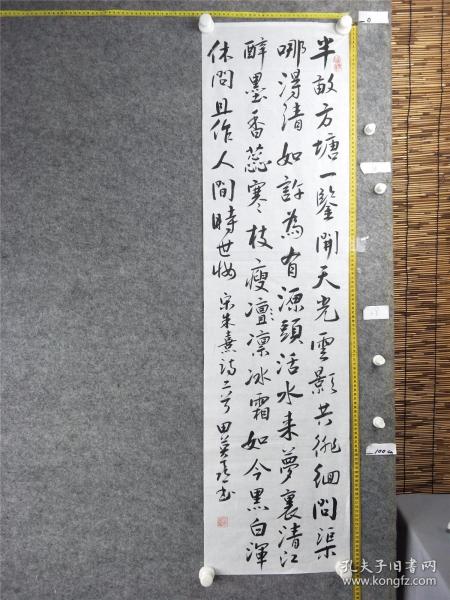 半畝方塘一鑒開天光雲影共徘徊問渠
哪得清如許為有源頭活水來夢裏清江
醉墨香蕊寒枝瘦凜凛冰霜如今黑白渾
休問且作人間時世妝 宋朱熹詩二首 田英书
0
100cm
孔夫子旧书网
kongfz.com